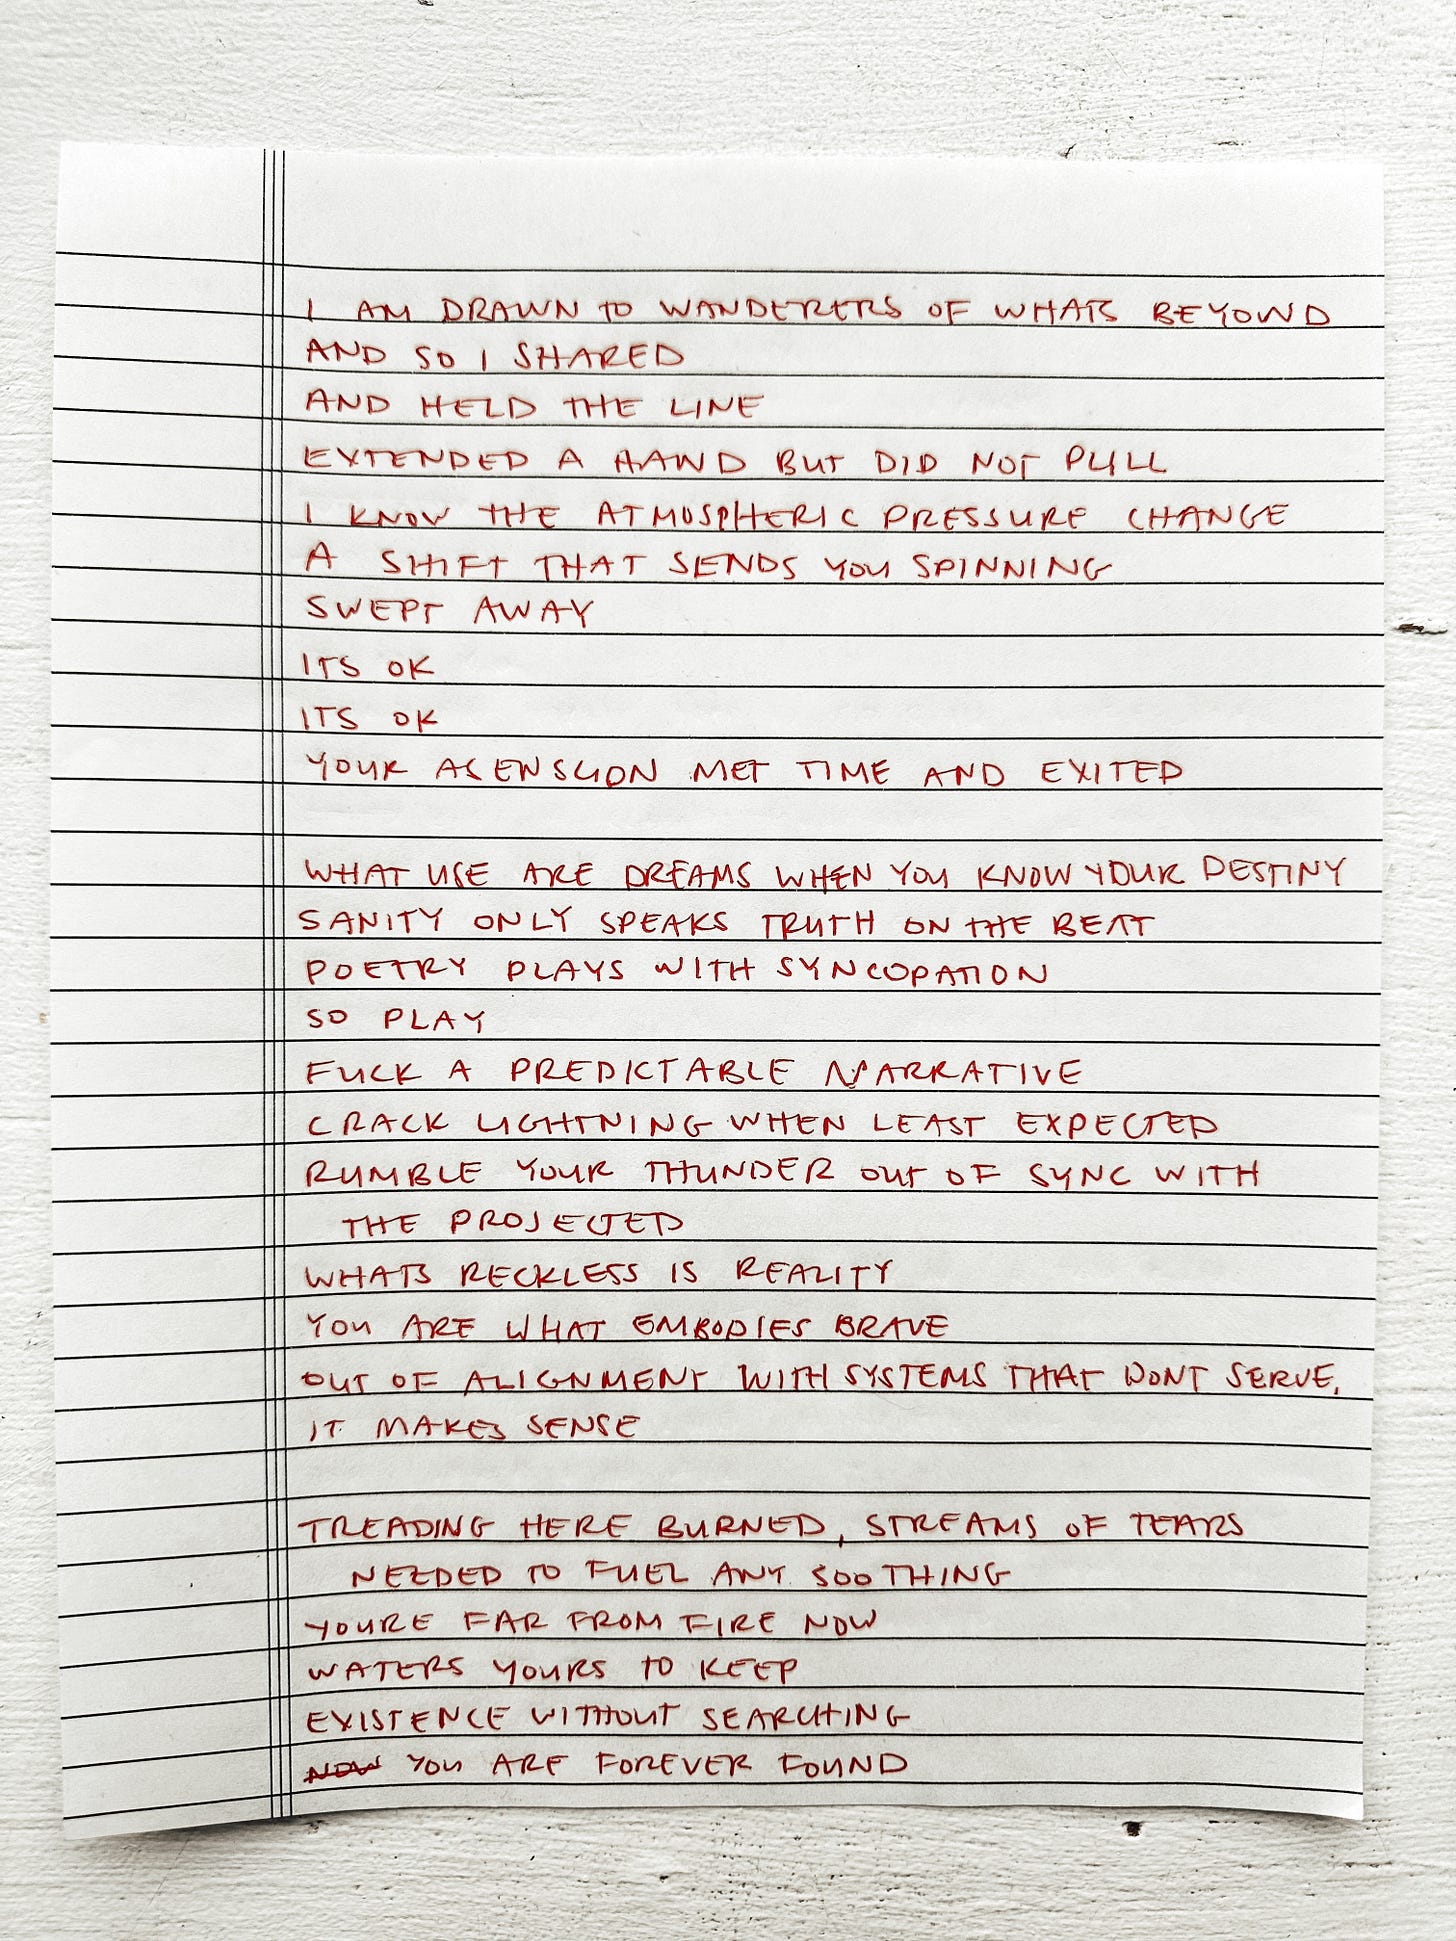 I AM DRAWN TO WANDERERS OF WHATS BEYOND
AND SO I SHARED
AND HELD THE LINE
EXTENDED A HAND BUT DID NOT PULL
I KNOW THE ATMOSPHERIC PRESSURE CHANGE
A SHIFT THAT SENDS YOU SPINNING
SWEPT AWAY
ITS OK
ITS OK
YOUR ASCENSION MET TIME AND EXITED
WHAT USE ARE DREAMS WHEN YOU KNOW YOUR DESTINY
SANITY ONLY SPEAKS TRUTH ON THE BEAT
POETRY PLAYS WITH SYNCOPATION
SO PLAY
FUCK A PREDICTABLE NARRATIVE
CRACK LIGHTNING WHEN LEAST EXPECTED
RUMBLE YOUR THUNDER OUT OF SYNC WITH
THE PROJECTED
WHATS RECKLESS IS REALITY
YOU ARE WHAT EMBODIES BRAVE
OUT OF ALIGNMENT WITH SYSTEMS THAT WONT SERVE,
IT MAKES SENSE
TREADING HERE BURNED, STREAMS OF TEARS
NEEDED TO FUEL ANY SOOTHING
YOURE FAR FROM FIRE NOW
WATERS YOURS TO KEEP
EXISTENCE WITHOUT SEARCHING
NOW YOU ARE FOREVER FOUND